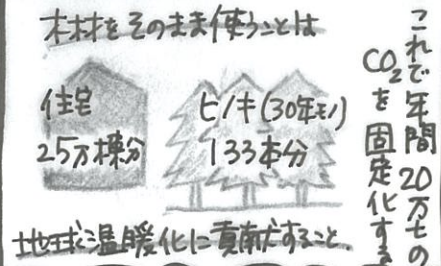 木材をそのまま使うことは
住宅
25万棟分
ヒノキ(30年モノ)
133本分
地球温暖化に貢献すること
これで年間20万tの
CO2を固定化する